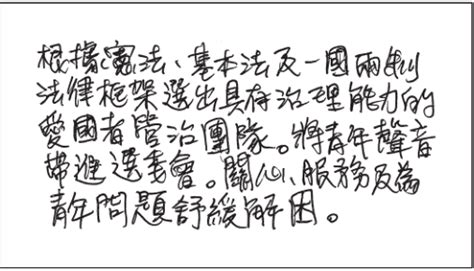 根據憲法、基本法及一國兩制
法律框架選出具有治理能力的
愛國者管治團隊。將青年聲音
帶進選委會。關心、服務及為
青年問題舒緩解困。